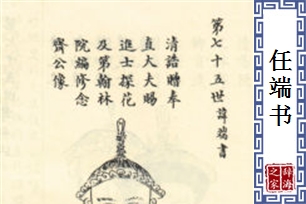 第七十五世諱端書
清誥贈奉
直大夫賜
進士探花
及第翰林
院編修念
齋公像
任端书
辞海
之家